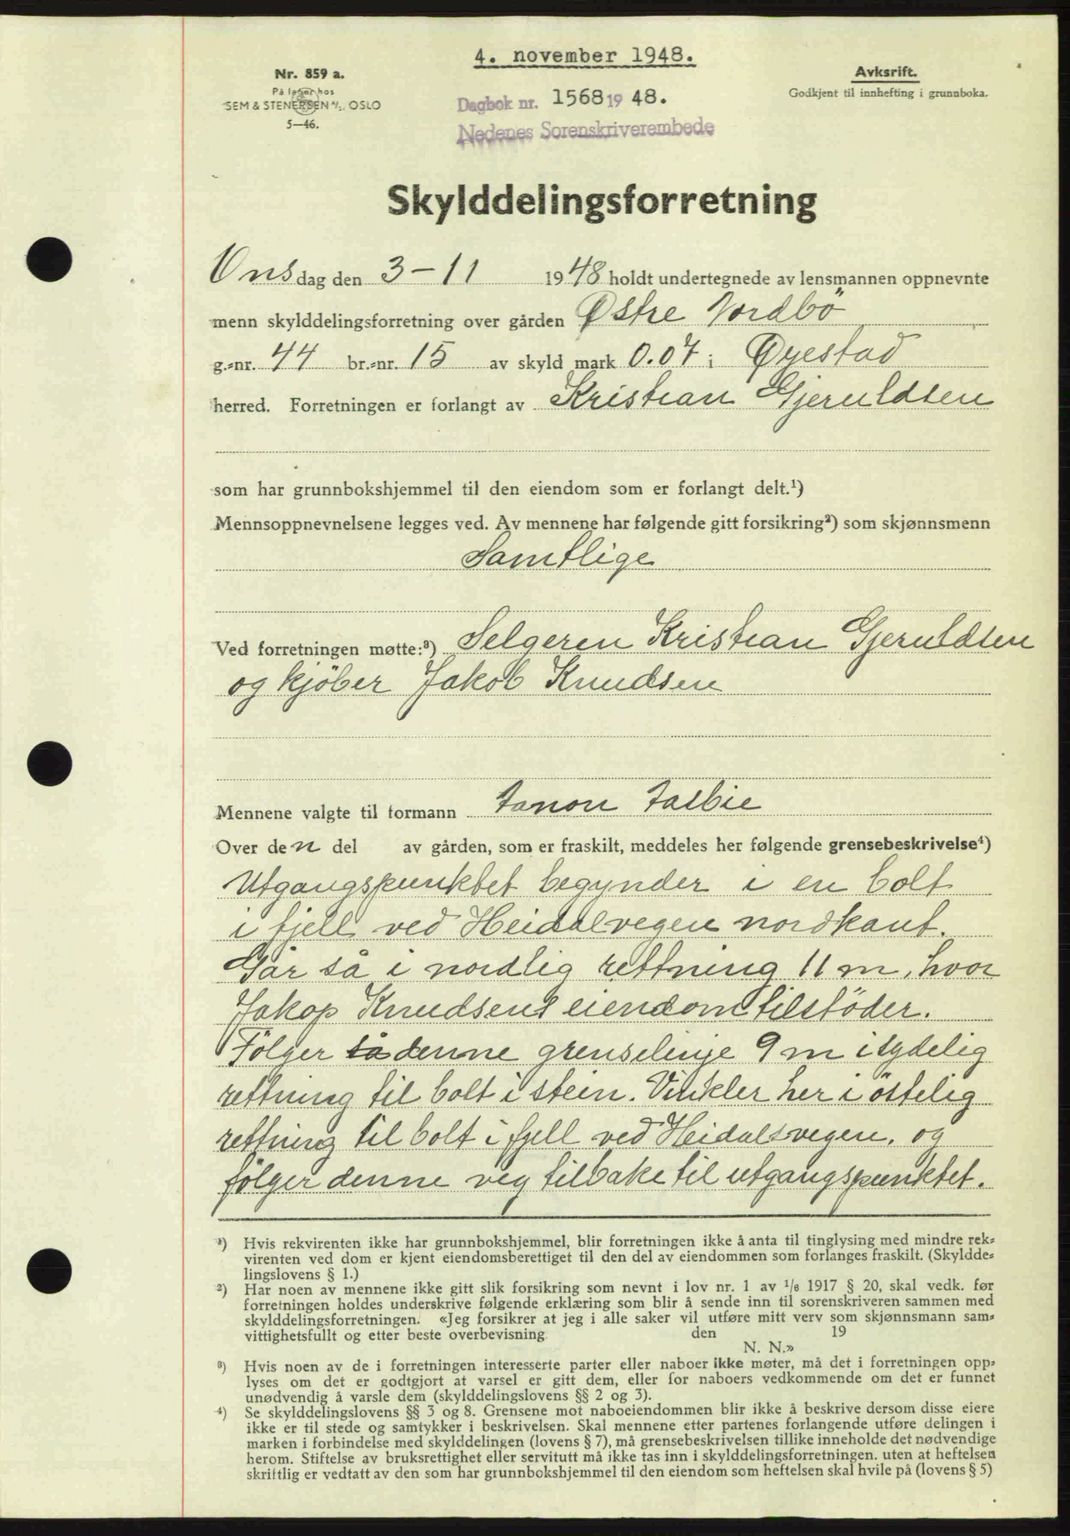 4. november 1948.
Nr. 859 a.
På lager hos
SEM & STENERSEN A/S, OSLO
5—46.
Avkskrift.
Godkjent til innhefting i grunnboka.
Dagbok nr. 1568 19 48.
Nedenes Sorenskriverembede
Skylddelingsforretning
Onsdag den 3-11 1948 holdt undertegnede av lensmannen oppnevnte
menn skylddelingsforretning over gården Østre Nordbö
g.-nr. 44 br.-nr. 15 av skyld mark 0.07 i Øyestad
herred. Forretningen er forlangt av Kristian Gjeruldsen
som har grunnbokshjemmel til den eiendom som er forlangt delt.¹)
Mennsoppnevnelsene legges ved. Av mennene har følgende gitt forsikring²) som skjønnsmenn
Samtlige
Ved forretningen møtte:³) Selgeren Kristian Gjeruldsen
og kjöber Jakob Knudsen
Mennene valgte til formann
Over den del av gården, som er fraskilt, meddeles her følgende grensebeskrivelse⁴)
Utgangspunktet begynder i en bolt
i fjell ved Heidalsvegen nordkant.
Går så i nordlig rettning 11 m, hvor
Jakop Knudsens eiendom tilstöder.
Fölger så denne grenselinje 9 m i sydelig
rettning til bolt i stein. Vinkler her i östelig
rettning til bolt i fjell ved Heidalsvegen, og
fölger denne veg tilbake til utgangspunktet.
¹) Hvis rekvirenten ikke har grunnbokshjemmel, blir forretningen ikke å anta til tinglysing med mindre rek-
virenten ved dom er kjent eiendomsberettiget til den del av eiendommen som forlanges fraskilt. (Skyldde-
lingslovens § 1.)
²) Har noen av mennene ikke gitt slik forsikring som nevnt i lov nr. 1 av 1/6 1917 § 20, skal vedk. før
forretningen holdes underskrive følgende erklæring som blir å sende inn til sorenskriveren sammen med
skylddelingsforretningen. «Jeg forsikrer at jeg i alle saker vil utføre mitt verv som skjønnsmann sam-
vittighetsfullt og etter beste overbevisning den 19
N. N.»
³) Hvis noen av de i forretningen interesserte parter eller naboer ikke møter, må det i forretningen opp-
lyses om det er godtgjort at varsel er gitt dem, eller for naboers vedkommende om det er funnet
unødvendig å varsle dem (skylddelingslovens §§ 2 og 3).
⁴) Se skylddelingslovens §§ 3 og 8. Grensene mot naboeiendommen blir ikke å beskrive dersom disse eiere
ikke er til stede og samtykker i beskrivelsen. Skal mennene etter partenes forlangende utføre delingen i
marken i forbindelse med skylddelingen (lovens § 7), må grensebeskrivelsen tillike inneholde det nødvendige
herom. Stiftelse av bruksrettighet eller servitutt må ikke tas inn i skylddelingsforretningen, uten at heftelsen
skriftlig er vedtatt av den som har grunnbokshjemmel til den eiendom som heftelsen skal hvile på (lovens § 5)